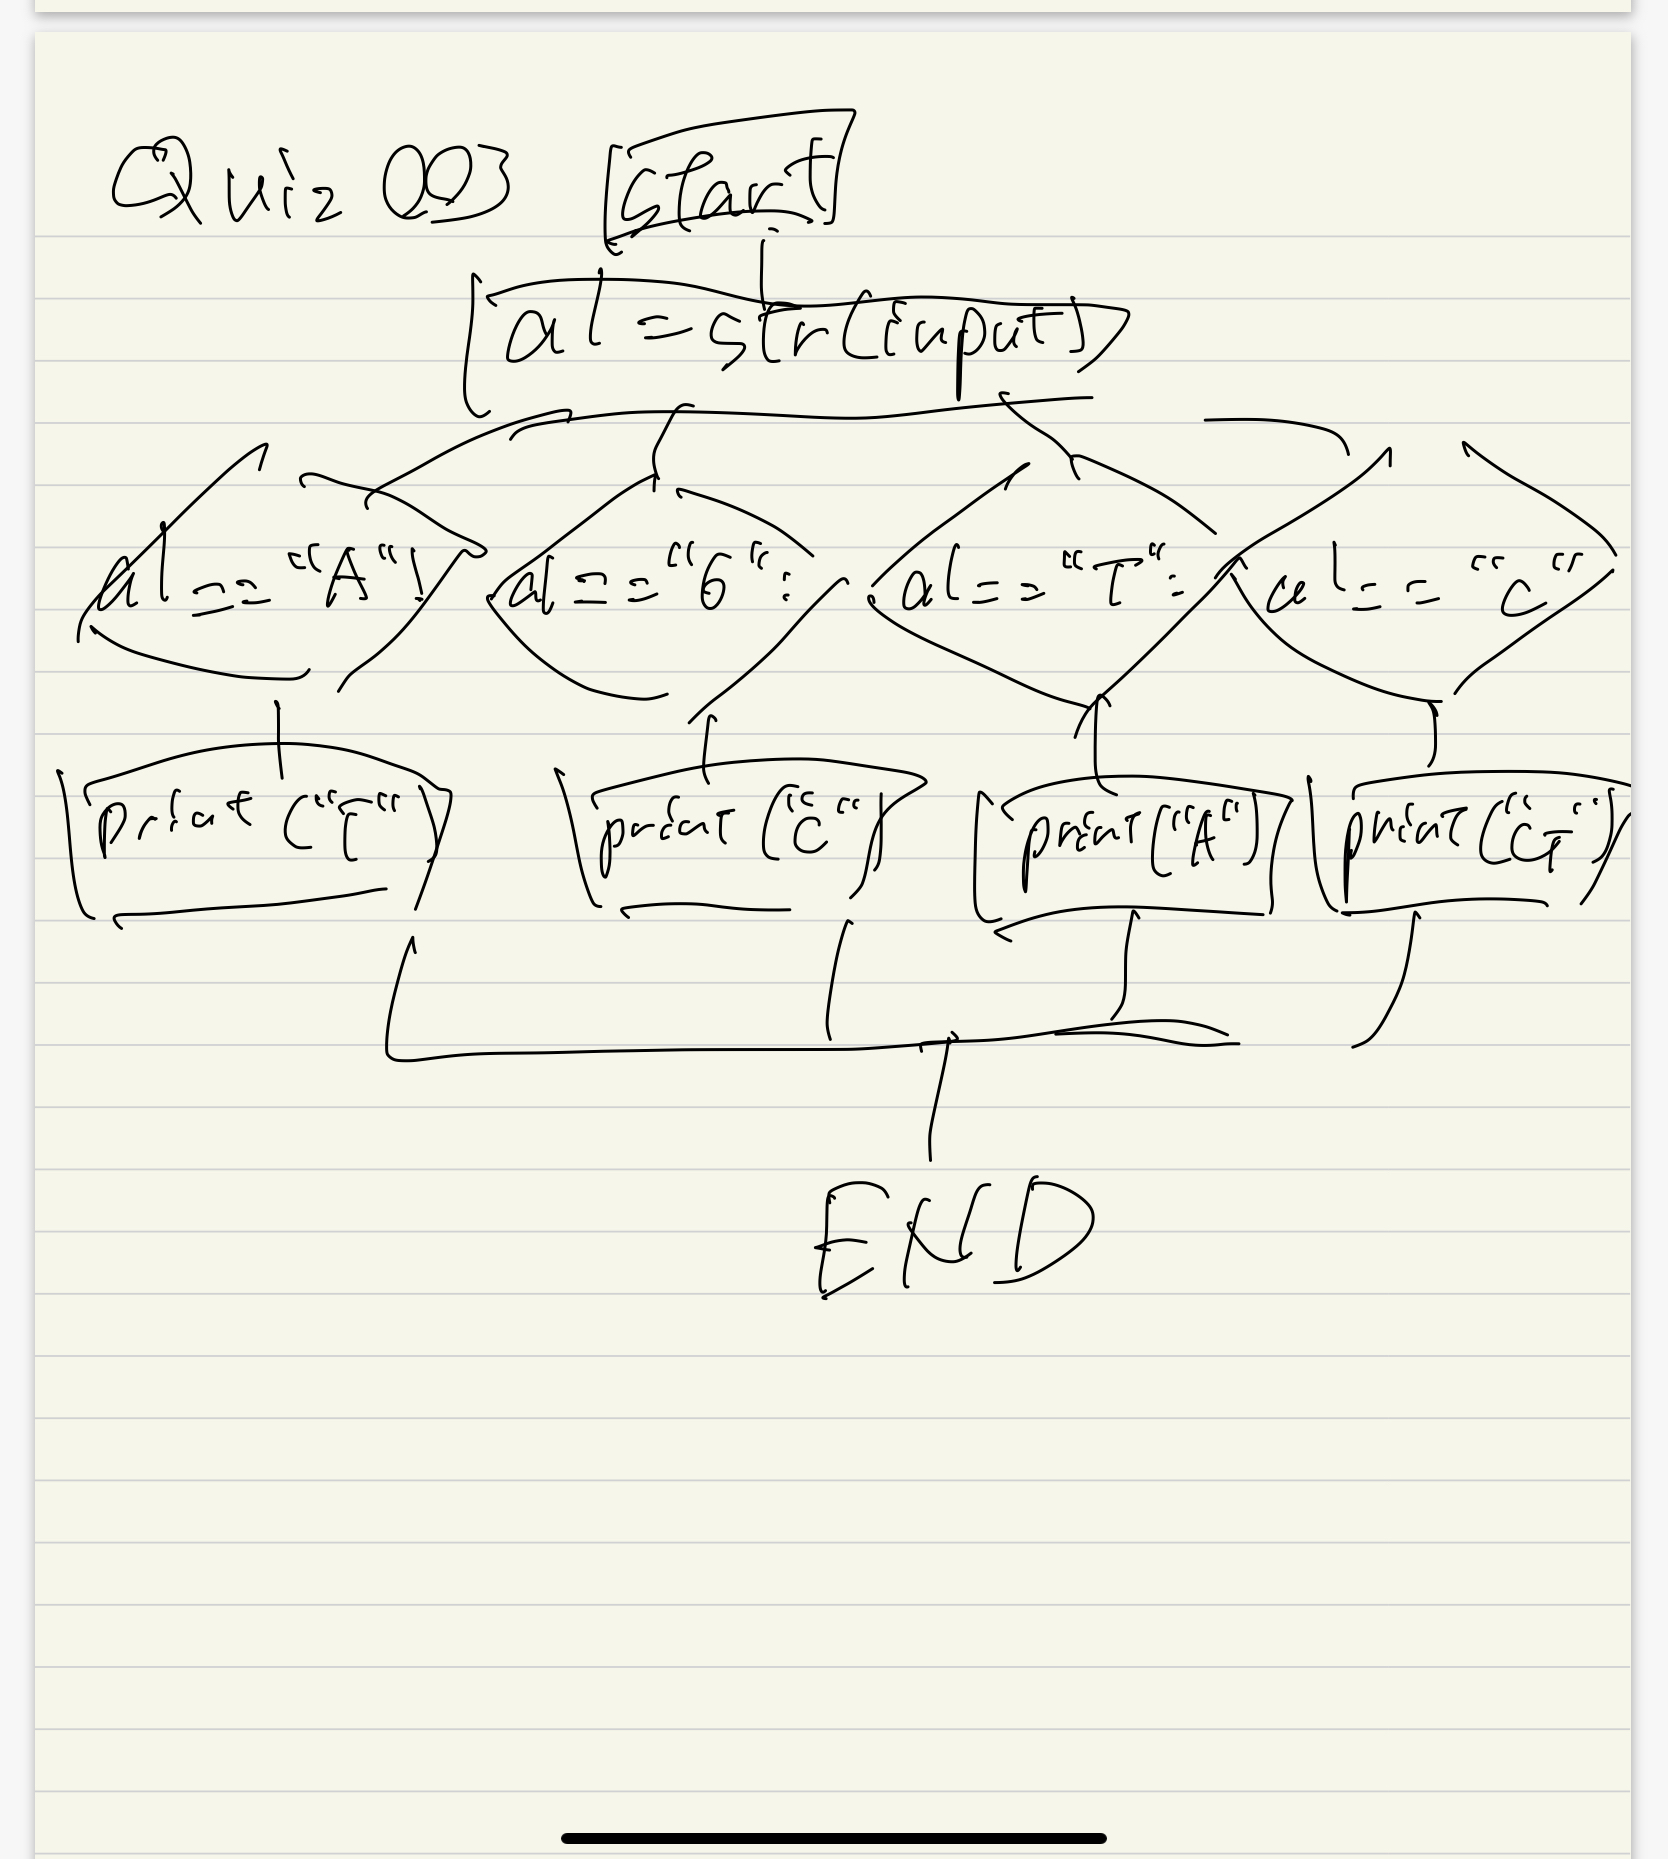 Quiz 003 Start
al = str(input)
al == "A": al == "G": al == "T": al == "C"
print ("T") print ("C") print ("A") print ("G")
END